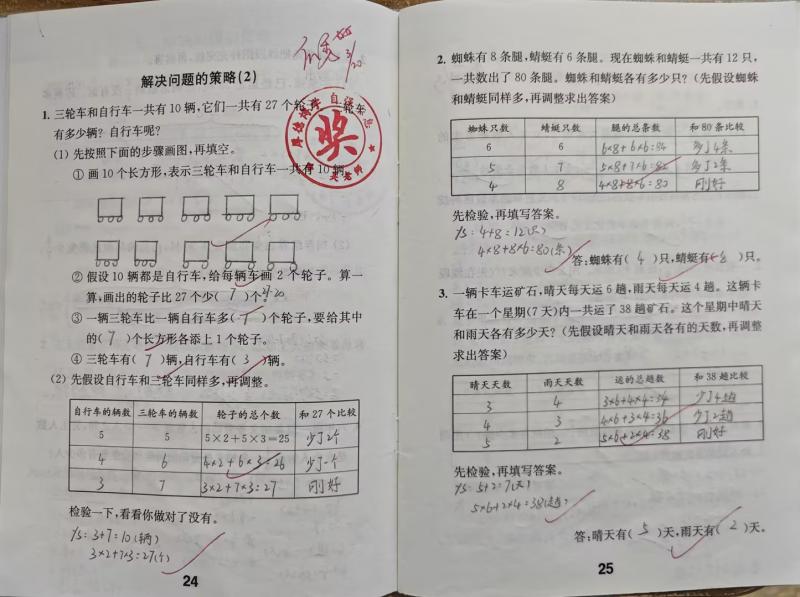 解决问题的策略(2)
3/20
奖
1. 三轮车和自行车一共有10辆,它们一共有27个轮
有多少辆?自行车呢?
(1) 先按照下面的步骤画图,再填空。
① 画10个长方形,表示三轮车和自行车一共有10辆。
② 假设10辆都是自行车,给每辆车画2个轮子。算一
算,画出的轮子比27个少(7)个。
27-20
③ 一辆三轮车比一辆自行车多(1)个轮子,要给其中
的(7)个长方形各添上1个轮子。
④ 三轮车有(7)辆,自行车有(3)辆。
(2) 先假设自行车和三轮车同样多,再调整。
自行车的辆数 三轮车的辆数 轮子的总个数 和27个比较
5 5 5×2+5×3=25 少了2个
4 6 4×2+6×3=26 少了一个
3 7 3×2+7×3=27 刚好
检验一下,看看你做对了没有。
3+7=10(辆)
3×2+7×3=27(个)
24
2. 蜘蛛有8条腿,蜻蜓有6条腿。现在蜘蛛和蜻蜓一共有12只,
一共数出了80条腿。蜘蛛和蜻蜓各有多少只?(先假设蜘蛛
和蜻蜓同样多,再调整求出答案)
蜘蛛只数 蜻蜓只数 腿的总条数 和80条比较
6 6 6×8+6×6=84 多了4条
5 7 5×8+7×6=82 多了2条
4 8 4×8+8×6=80 刚好
先检验,再填写答案。
4+8=12(只)
4×8+8×6=80(条)
答:蜘蛛有(4)只,蜻蜓有(8)只。
3. 一辆卡车运矿石,晴天每天运6趟,雨天每天运4趟。这辆卡
车在一个星期(7天)内一共运了38趟矿石。这个星期中晴天
和雨天各有多少天?(先假设晴天和雨天各有的天数,再调整
求出答案)
晴天天数 雨天天数 运的总趟数 和38趟比较
3 4 3×6+4×4=34 少了4趟
4 3 4×6+3×4=36 少了2趟
5 2 5×6+2×4=38 刚好
先检验,再填写答案。
5+2=7(天)
5×6+2×4=38(趟)
答:晴天有(5)天,雨天有(2)天。
25